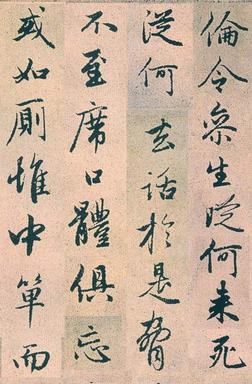 倫令衆生從何来死
從何去話於是脅
不至席口體俱忘
或如厠惟中單而